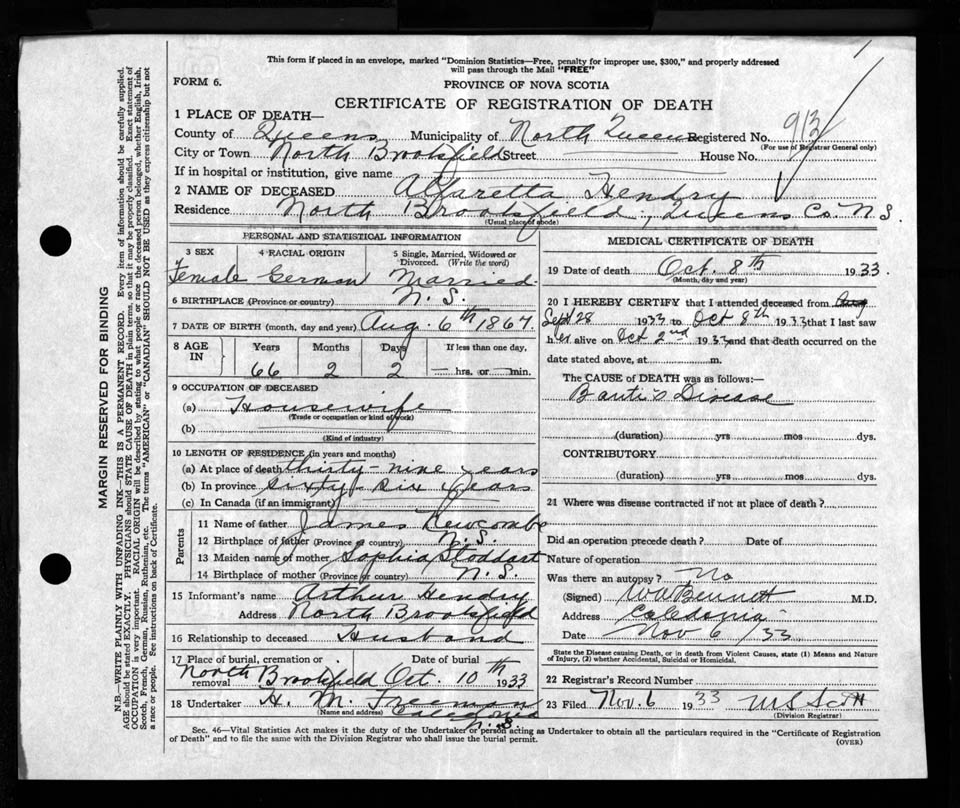 This form if placed in an envelope, marked "Dominion Statistics—Free, penalty for improper use, $300," and properly addressed
will pass through the Mail "FREE"
FORM 6.
PROVINCE OF NOVA SCOTIA
CERTIFICATE OF REGISTRATION OF DEATH
1 PLACE OF DEATH—
County of Queens Municipality of North Queens Registered No. 913
(For use of Registrar General only)
City or Town North Brookfield Street House No.
If in hospital or institution, give name
2 NAME OF DECEASED Alfaretta Hendry
Residence North Brookfield, Queens Co. N.S.
(Usual place of abode)
PERSONAL AND STATISTICAL INFORMATION
3 SEX 4 RACIAL ORIGIN 5 Single, Married, Widowed or
Divorced. (Write the word)
Female German Married
6 BIRTHPLACE (Province or country) N.S.
7 DATE OF BIRTH (month, day and year) Aug. 6th 1867.
8 AGE IN Years Months Days If less than one day,
66 2 2 — hrs. or — min.
9 OCCUPATION OF DECEASED
(a) Housewife
(Trade or occupation or kind of work)
(b)
(Kind of industry)
10 LENGTH OF RESIDENCE (in years and months)
(a) At place of death thirty-nine years
(b) In province Sixty-six years
(c) In Canada (if an immigrant)
Parents
11 Name of father James Newcombe
12 Birthplace of father (Province or country) N.S.
13 Maiden name of mother Sophia Stoddart
14 Birthplace of mother (Province or country) N.S.
15 Informant's name Arthur Hendry
Address North Brookfield
16 Relationship to deceased Husband
17 Place of burial, cremation or removal Date of burial
North Brookfield Oct. 10th 1933
18 Undertaker H. M.
(Name and address) Caledonia
N.S.
MEDICAL CERTIFICATE OF DEATH
19 Date of death Oct. 8th 1933.
(Month, day and year)
20 I HEREBY CERTIFY that I attended deceased from Aug
Sept 28 1933 to Oct 8th 1933 that I last saw
her alive on Oct 2nd 1933 and that death occurred on the
date stated above, at m.
The CAUSE of DEATH was as follows:—
Banti's Disease
(duration) yrs mos dys.
CONTRIBUTORY
(duration) yrs mos dys.
21 Where was disease contracted if not at place of death?
Did an operation precede death? Date of
Nature of operation
Was there an autopsy? No
(Signed) W A Bennett M.D.
Address Caledonia
Date Nov 6/33
State the Disease causing Death, or in death from Violent Causes, state (1) Means and Nature
of Injury, (2) whether Accidental, Suicidal or Homicidal.
22 Registrar's Record Number
23 Filed Nov. 6 1933 M S Scott
(Division Registrar)
Sec. 46—Vital Statistics Act makes it the duty of the Undertaker or person acting as Undertaker to obtain all the particulars required in the "Certificate of Registration
of Death" and to file the same with the Division Registrar who shall issue the burial permit.
(OVER)
MARGIN RESERVED FOR BINDING
N.B.—WRITE PLAINLY WITH UNFADING INK—THIS IS A PERMANENT RECORD. Every item of information should be carefully supplied.
AGE should be stated EXACTLY. PHYSICIANS should STATE CAUSE OF DEATH in plain terms, so that it may be properly classified. Exact statement of
OCCUPATION is very important. RACIAL ORIGIN will be described by stating to what people or race the deceased person belonged, whether English, Irish,
Scotch, French, German, Russian, Ruthenian, etc. The terms "AMERICAN" or "CANADIAN" SHOULD NOT BE USED as they express citizenship but not
a race or people. See instructions on back of Certificate.